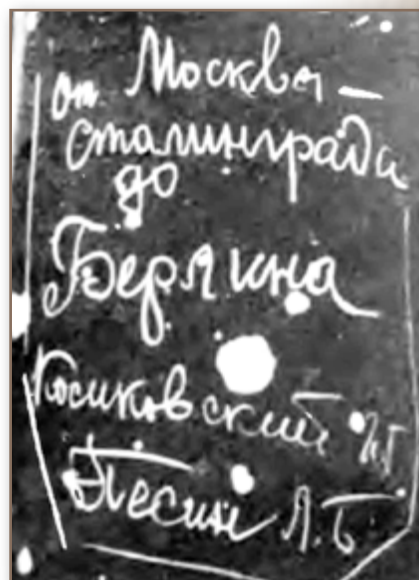 от Москвы –
сталинграда
до
Берлина
Косиковский
Песин Л.Б